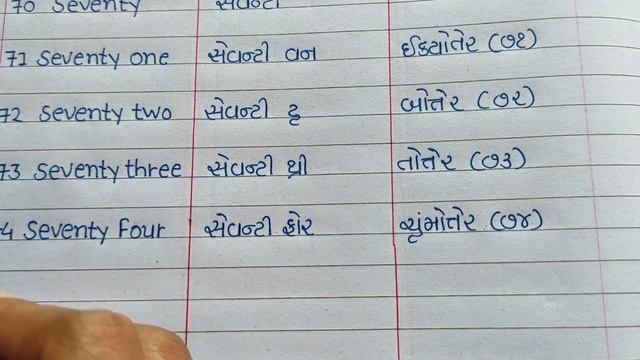 70 Seventy સેવન્ટી
71 Seventy one સેવન્ટી વન ઈક્યોતેર (૭૧)
72 Seventy two સેવન્ટી ટૂ બોતેર (૭૨)
73 Seventy three સેવન્ટી થ્રી તોતેર (૭૩)
4 Seventy Four સેવન્ટી ફોર ચુંમોતેર (૭૪)